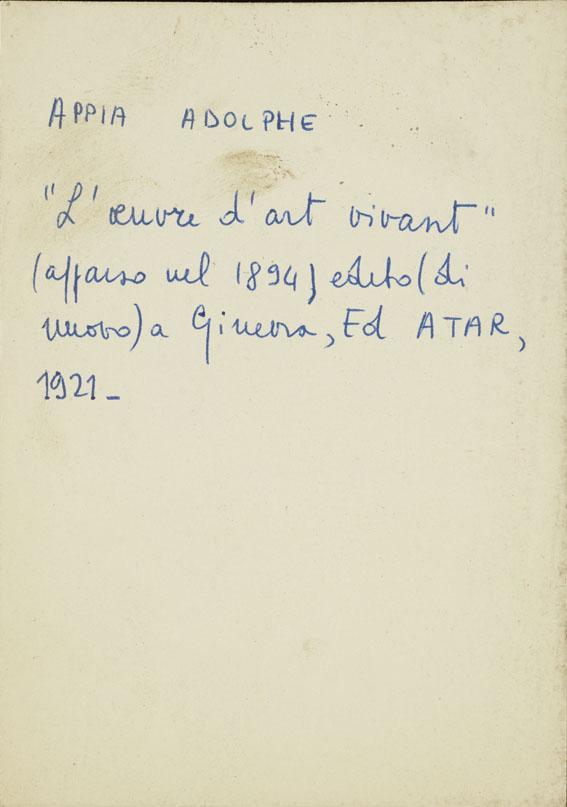 APPIA ADOLPHE
"L'œuvre d'art vivant"
(apparso nel 1894) edito (di
nuovo) a Ginevra, Ed ATAR,
1921_